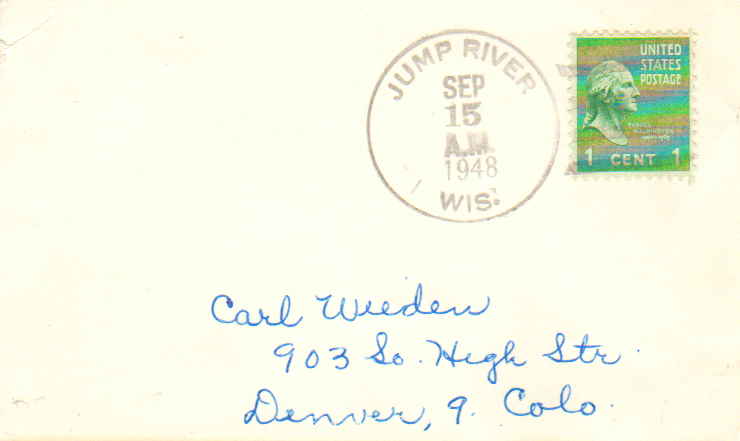 JUMP RIVER
SEP
15
A.M.
1948
WIS.
UNITED
STATES
POSTAGE
1 CENT 1
Carl Wieden
903 So. High Str.
Denver, 9. Colo.